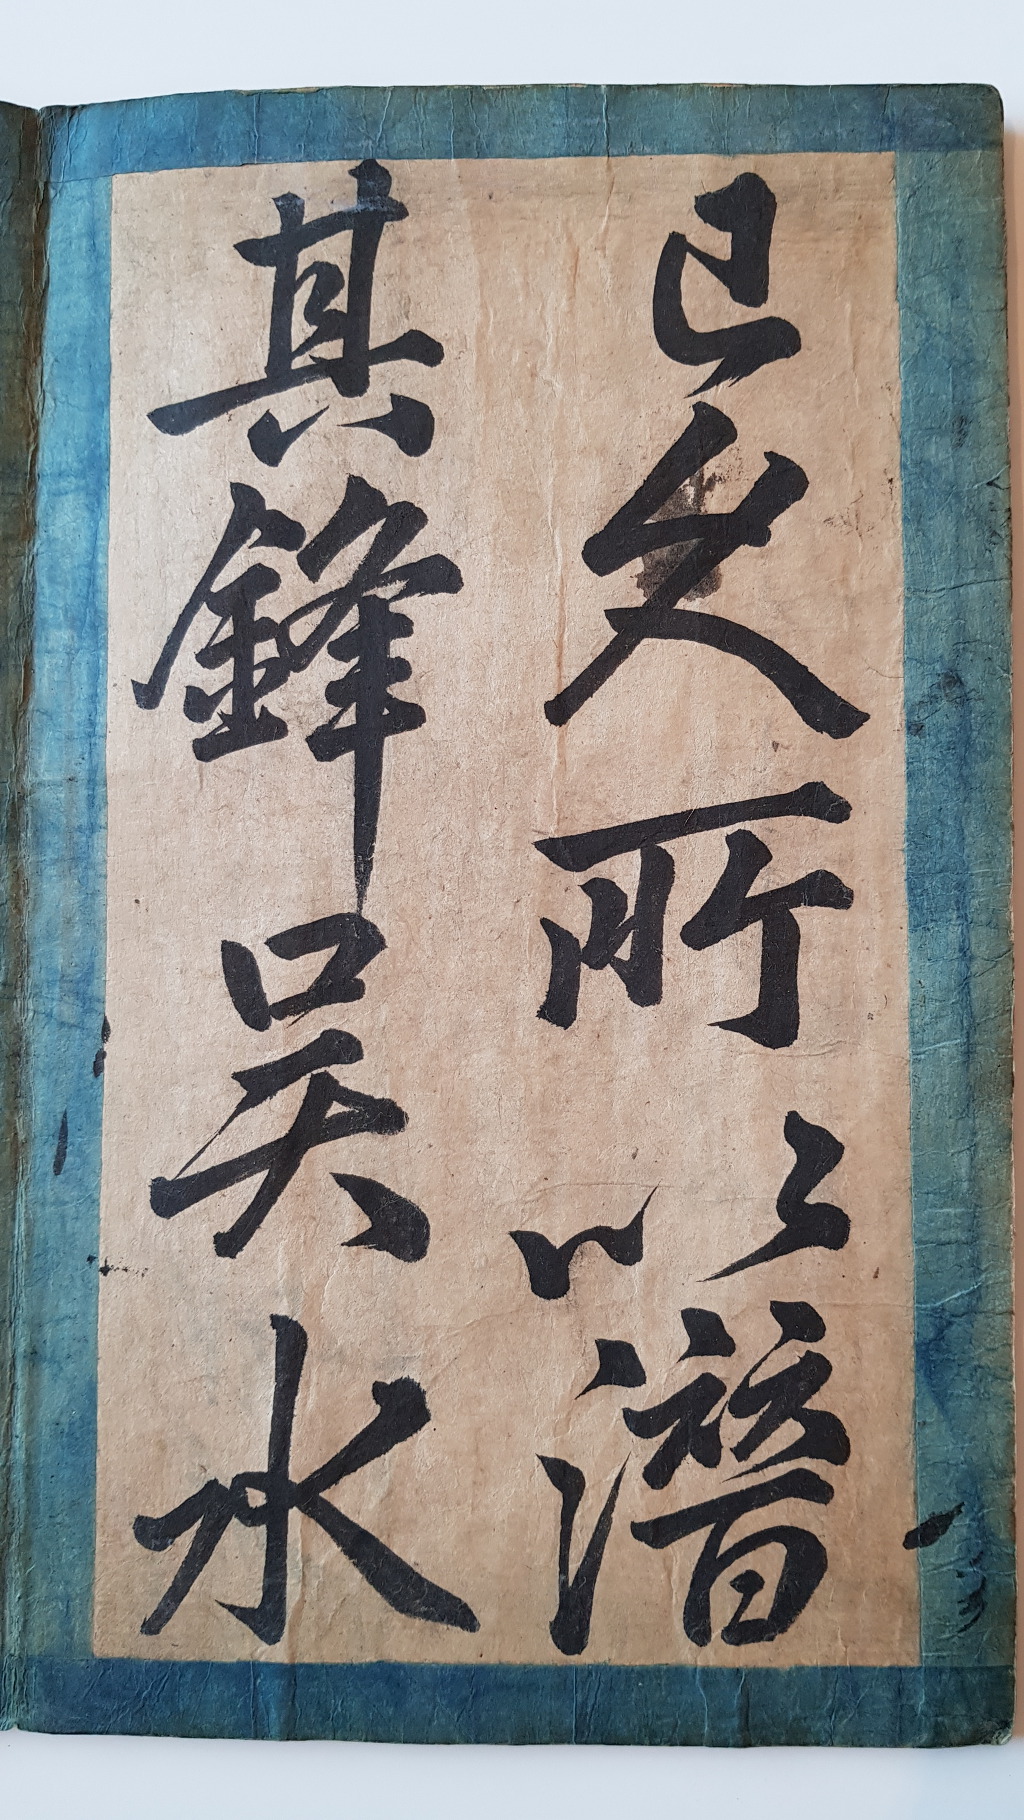 已久所以潛
其鋒吴水